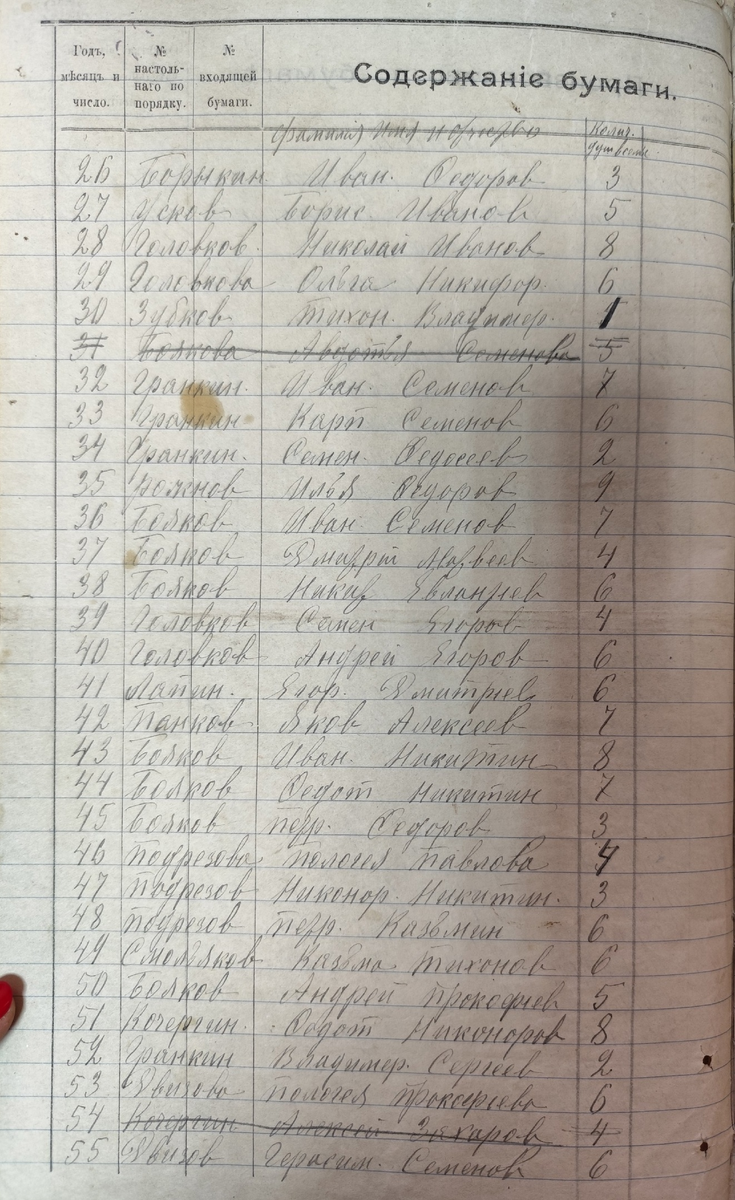 Годъ, мѣсяцъ и число. № настольнаго по порядку. № входящей бумаги. Содержаніе бумаги.
фамилия имя и отчество Колич. душ всем
26 Борыкин Иван. Федоров 3
27 Усков Борис Иванов 5
28 Головков. Николай Иванов 8
29 Головкова Ольга Никифор. 6
30 Зубков Тихон. Владимер. 1
31 Боякова Авдотья Семенова 5
32 Гранкин. Иван. Семенов 7
33 Гранкин Карп Семенов 6
34 Гранкин. Семен. Федосеев 2
35 Рожнов Илья Федоров 9
36 Бояков Иван Семенов 7
37 Бояков Дмитрий Матвеев 4
38 Бояков Никит 6
39 Головков Семен Егоров 4
40 Головков Андрей Егоров 6
41 Лапин. Егор. Дмитриев 6
42 Панков Яков Алексеев 7
43 Бояков Иван. Никитин 8
44 Бояков Федот Никитин 7
45 Бояков Петр. Федоров 3
46 Подрезова Пологея Павлова 4
47 Подрезов Никонор. Никитин. 3
48 Подрезов Петр. Казьмин 6
49 Смольяков Казьма Тихонов 6
50 Бояков Андрей Прокофиев 5
51 Кочергин. Федот Никоноров 8
52 Гранкин Владимер. Сергеев 2
53 Двизова Пологея Прокофиева 6
54 Кочергин Алексей Захаров 4
55 Двизов Герасим. Семенов 6